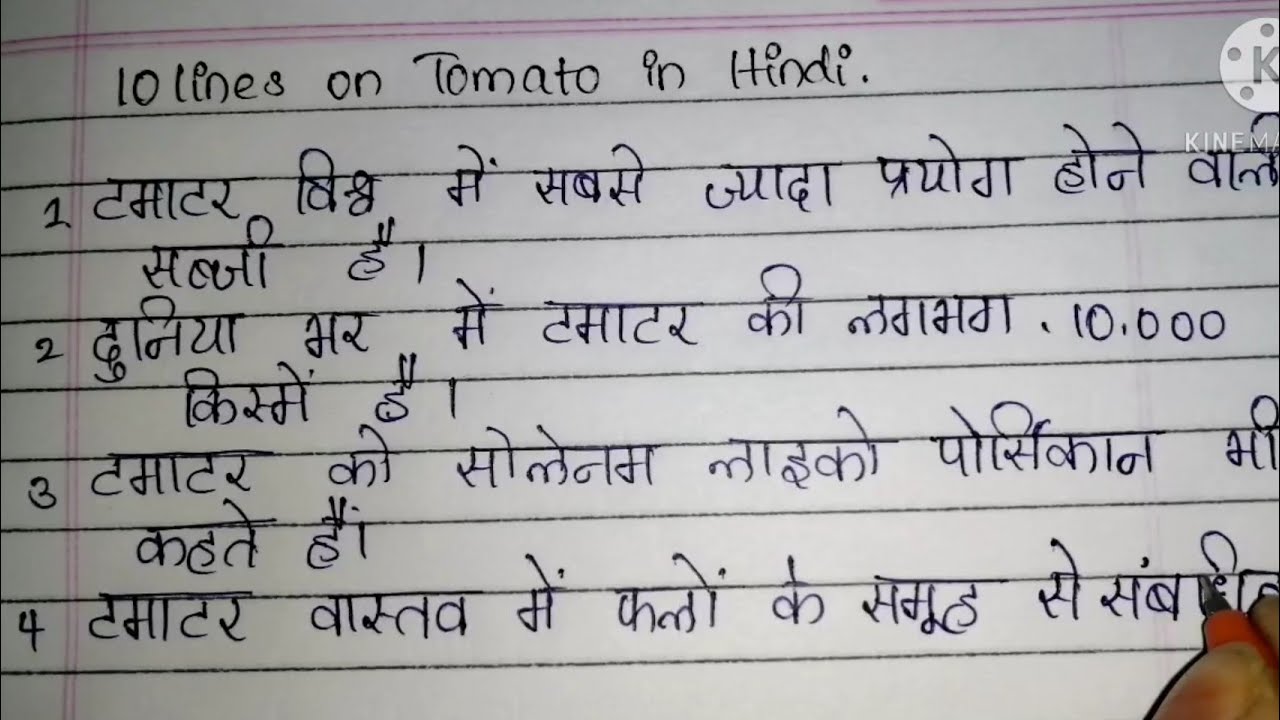 10 lines on Tomato in Hindi.
K
KINEMA
1 टमाटर विश्व में सबसे ज्यादा प्रयोग होने वाली
सब्जी है।
2 दुनिया भर में टमाटर की लगभग . 10.000
किस्में है।
3 टमाटर को सोलेनम लाइको पोर्सिकान भी
कहते हैं।
4 टमाटर वास्तव में फलों के समूह से